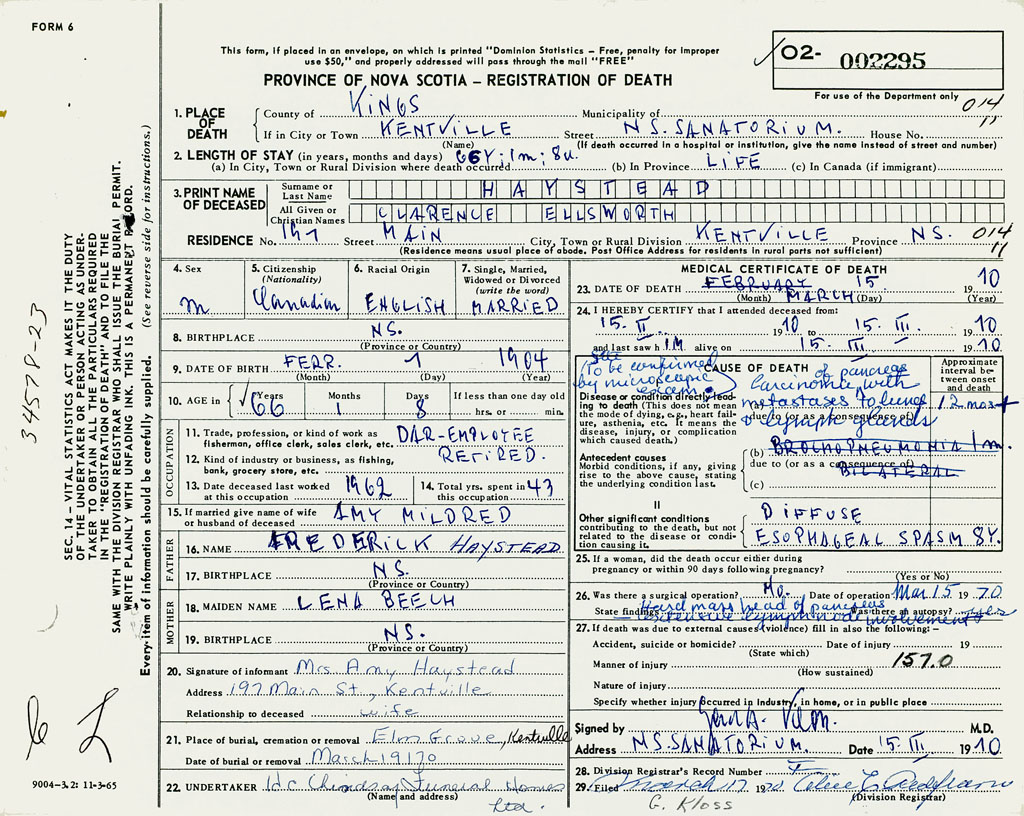 FORM 6
This form, if placed in an envelope, on which is printed "Dominion Statistics – Free, penalty for improper
use $50," and properly addressed will pass through the mail "FREE"
PROVINCE OF NOVA SCOTIA – REGISTRATION OF DEATH
02- 002295
For use of the Department only
014
11
1. PLACE OF DEATH
County of KINGS Municipality of
If in City or Town KENTVILLE Street N.S. SANATORIUM. House No.
(Name) (If death occurred in a hospital or institution, give the name instead of street and number)
2. LENGTH OF STAY (in years, months and days) 66Y; 1m; 8d.
(a) In City, Town or Rural Division where death occurred (b) In Province LIFE (c) In Canada (if immigrant)
3. PRINT NAME OF DECEASED
Surname or Last Name HAYSTEAD
All Given or Christian Names CLARENCE ELLSWORTH
RESIDENCE No. 197 Street MAIN City, Town or Rural Division KENTVILLE Province N.S. 014
11
(Residence means usual place of abode. Post Office Address for residents in rural parts not sufficient)
4. Sex M
5. Citizenship (Nationality) Canadian
6. Racial Origin ENGLISH
7. Single, Married, Widowed or Divorced (write the word) MARRIED
8. BIRTHPLACE N.S.
(Province or Country)
9. DATE OF BIRTH FEBR. 7 1904
(Month) (Day) (Year)
10. AGE in Years 66 Months 1 Days 8 If less than one day old
hrs. or min.
OCCUPATION
11. Trade, profession, or kind of work as fisherman, office clerk, sales clerk, etc. DAR-EMPLOYEE
12. Kind of industry or business, as fishing, bank, grocery store, etc. RETIRED.
13. Date deceased last worked at this occupation 1962
14. Total yrs. spent in this occupation 43
15. If married give name of wife or husband of deceased AMY MILDRED
FATHER
16. NAME FREDERICK HAYSTEAD
17. BIRTHPLACE N.S.
(Province or Country)
MOTHER
18. MAIDEN NAME LENA BEECH
19. BIRTHPLACE N.S.
(Province or Country)
20. Signature of informant Mrs. Amy Haystead
Address 197 Main St., Kentville
Relationship to deceased wife
21. Place of burial, cremation or removal Elm Grove, Kentville
Date of burial or removal March 19 1970
22. UNDERTAKER Funeral Homes
(Name and address) Ltd.
MEDICAL CERTIFICATE OF DEATH
23. DATE OF DEATH FEBRUARY MARCH 15 1970
(Month) (Day) (Year)
24. I HEREBY CERTIFY that I attended deceased from:
15. II 1970 to 15. III. 1970
and last saw him alive on 15. III 1970
To be confirmed
by microscopic
CAUSE OF DEATH
Approximate interval between onset and death
Disease or condition directly leading to death (This does not mean the mode of dying, e.g., heart failure, asthenia, etc. It means the disease, injury, or complication which caused death.)
Carcinoma of pancreas with
metastases to lung
& lymph glands
12 mos +
due to (or as a consequence of)
Antecedent causes
Morbid conditions, if any, giving rise to the above cause, stating the underlying condition last.
(b) BRONCHOPNEUMONIA 1m.
due to (or as a consequence of) BILATERAL
(c)
II
Other significant conditions
contributing to the death, but not related to the disease or condition causing it.
DIFFUSE
ESOPHAGEAL SPASM 8Y.
25. If a woman, did the death occur either during
pregnancy or within 90 days following pregnancy?
(Yes or No)
26. Was there a surgical operation? Date of operation Mar 15 1970
State findings Hard mass head of pancreas Was there an autopsy?
extensive lymph node involvement
27. If death was due to external causes (violence) fill in also the following:–
Accident, suicide or homicide? Date of injury 19
(State which)
157.0
Manner of injury
(How sustained)
Nature of injury
Specify whether injury occurred in industry, in home, or in public place
Signed by M.D.
Address N.S. SANATORIUM. Date 15. III 1970
28. Division Registrar's Record Number
29. Filed March 17 1970
(Division Registrar)
G. Kloss
SEC. 14 – VITAL STATISTICS ACT MAKES IT THE DUTY
OF THE UNDERTAKER OR PERSON ACTING AS UNDER-
TAKER TO OBTAIN ALL THE PARTICULARS REQUIRED
IN THE "REGISTRATION OF DEATH" AND TO FILE THE
SAME WITH THE DIVISION REGISTRAR WHO SHALL ISSUE THE BURIAL PERMIT.
WRITE PLAINLY WITH UNFADING INK. THIS IS A PERMANENT RECORD.
Every item of information should be carefully supplied. (See reverse side for instructions.)
34578-23
9004-3.2: 11-3-65